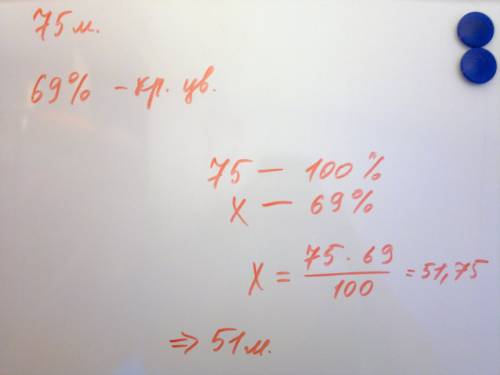 75 м.
69% - кр. цв.
75 — 100%
x — 69%
x = 75 · 69 / 100 = 51,75
⇒ 51 м.